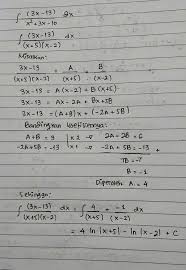 ∫ (3x-13)/(x²+3x-10) dx
∫ (3x-13)/((x+5)(x-2)) dx
Misalkan:
(3x-13)/((x+5)(x-2)) = A/(x+5) + B/(x-2)
3x-13 = A(x-2) + B(x+5)
3x-13 = Ax-2A + Bx+5B
3x-13 = (A+B)x + (-2A+5B)
Bandingkan koefisiennya:
A+B = 3 | x2 → 2A+2B = 6
-2A+5B = -13 | x1 → -2A+5B = -13 +
7B = -7
B = -1
Diperoleh A = 4
Sehingga:
∫ (3x-13)/((x+5)(x-2)) dx = ∫ 4/(x+5) + -1/(x-2) dx
= 4 ln |x+5| - ln |x-2| + C